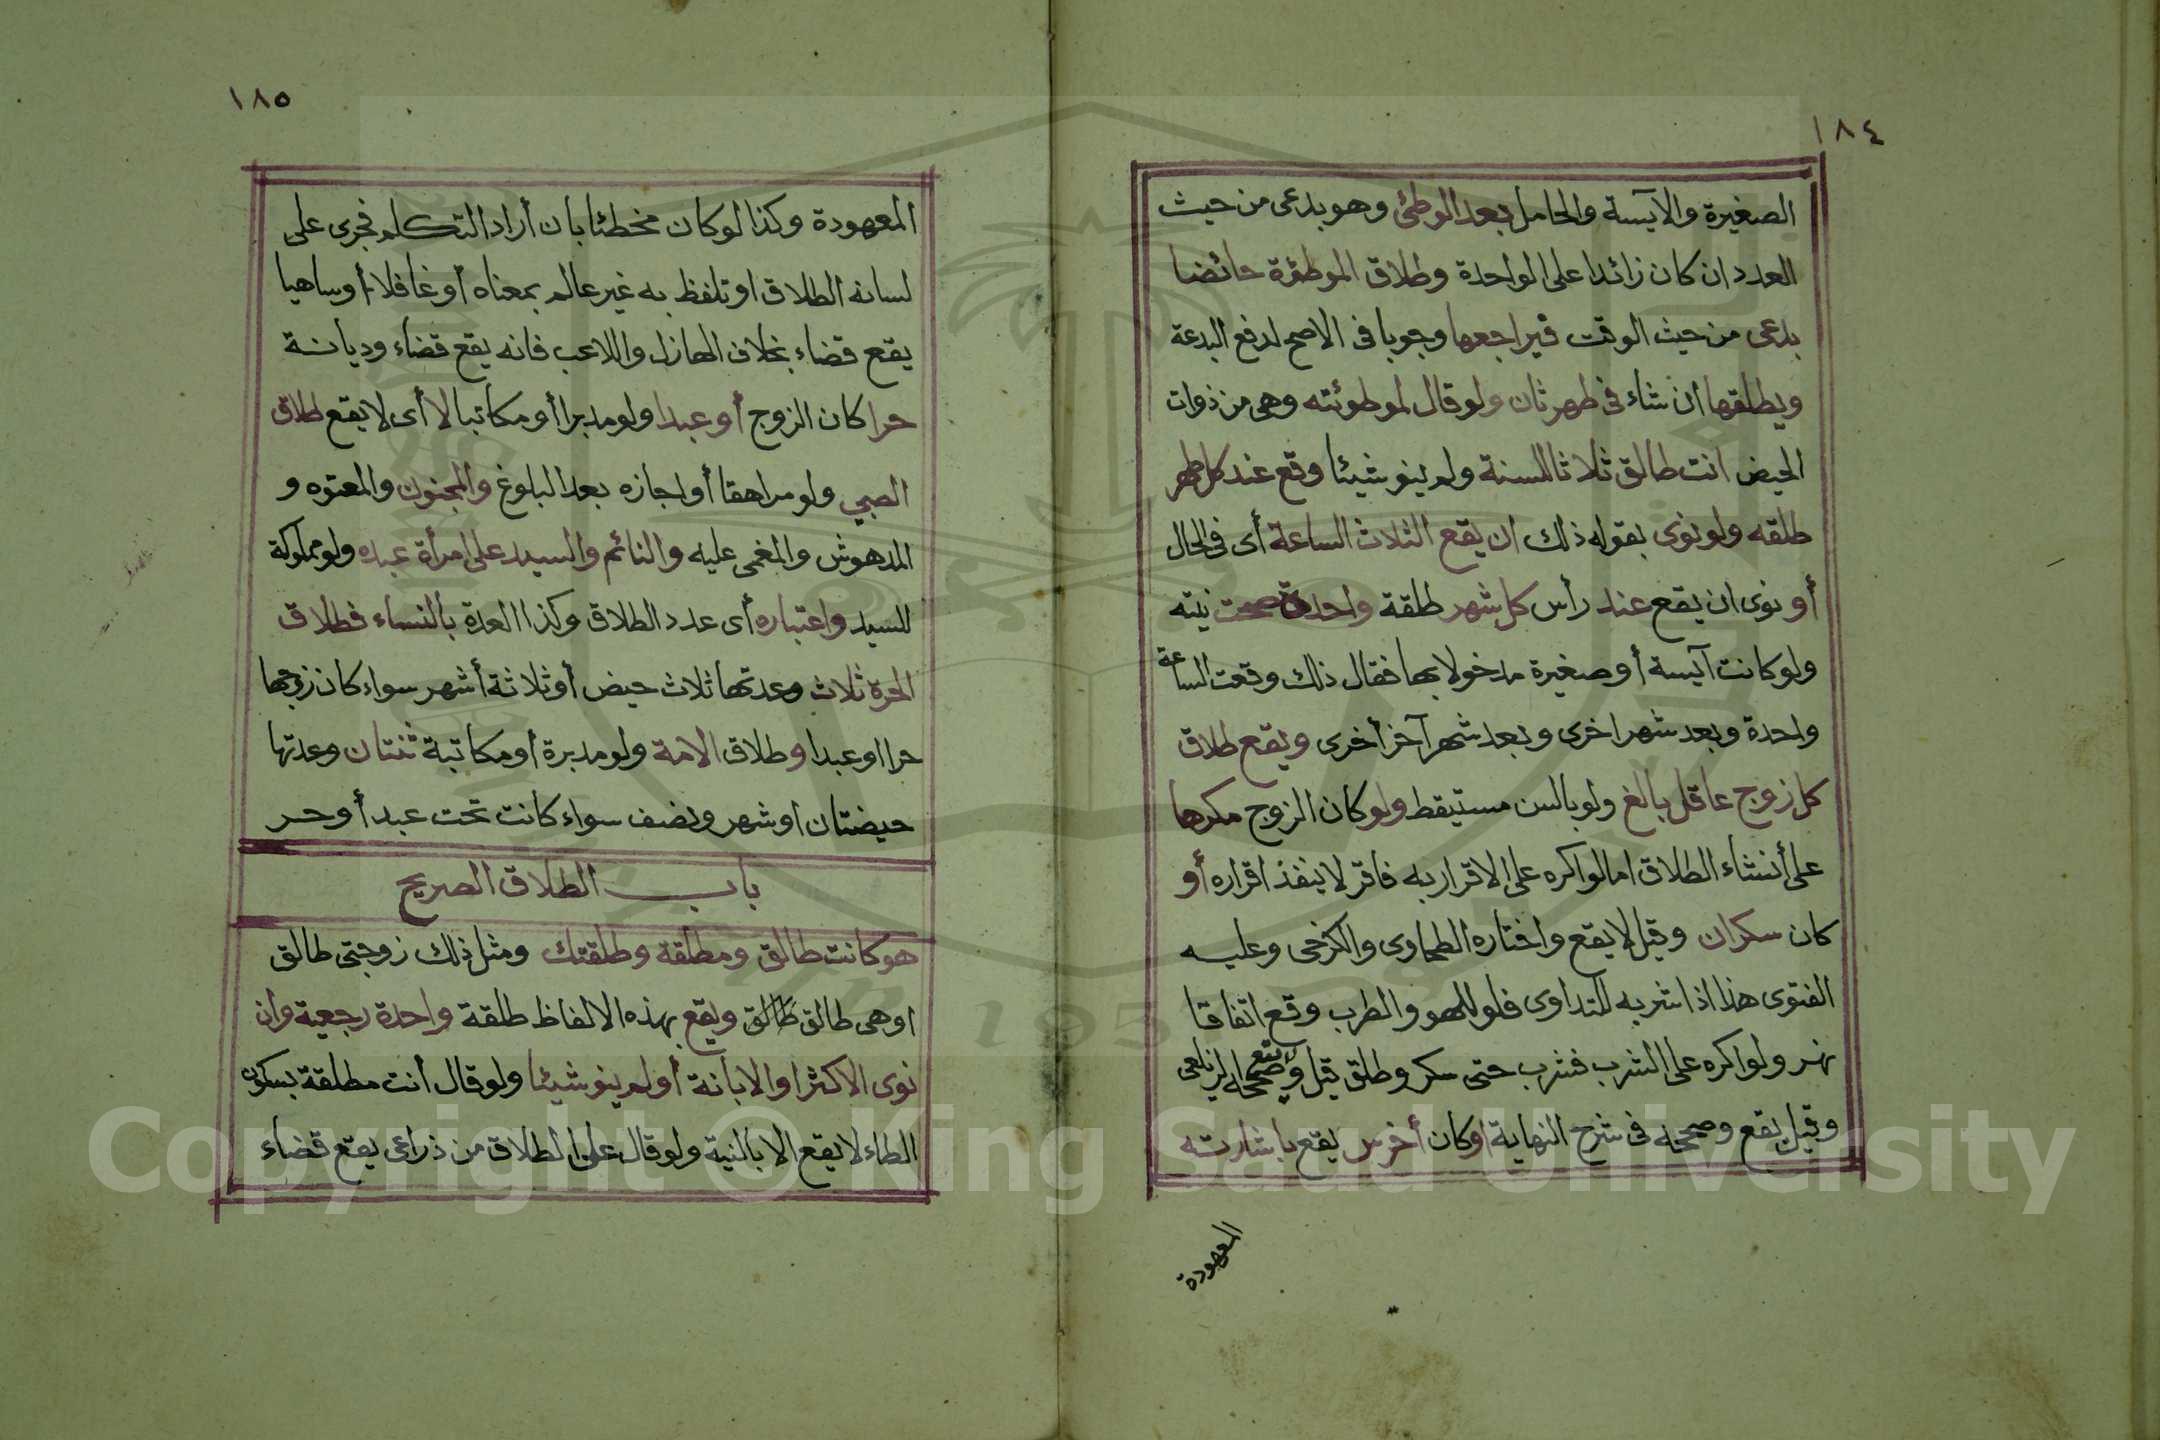 ١٨٤
الصغيرة والآيسة والحامل بعد الوطئ وهو بدعى من حيث
العدد ان كان زائدا على الواحدة وطلاق الموطئوة حائضا
بدعى من حيث الوقت فيراجعها وجوبا فى الاصح لدفع البدعة
ويطلقها ان شاء فى طهر ثان ولو قال لموطوئته وهى من ذوات
الحيض انت طالق ثلاثا للسنة ولم ينو شيئا وقع عند كل طهر
طلقه ولو نوى بقوله ذلك ان يقع الثلاث الساعة أى فى الحال
أو نوى ان يقع عند رأس كل شهر طلقة واحدة صحت نيته
ولو كانت آيسة أو صغيرة مدخولا بها فقال ذلك وقعت الساعة
واحدة وبعد شهر اخرى وبعد شهر آخر أخرى ويقع طلاق
كل زوج عاقل بالغ ولو بالسن مستيقظ ولو كان الزوج مكرها
على أنشاء الطلاق اما لو اكره على الاقرار به فاقر لا ينفذ اقراره أو
كان سكران وقيل لا يقع واختاره الطحاوى والكرخى وعليه
الفتوى هذا اذا شربه للتداوى فلو للهو والطرب وقع اتفاقا
نهر ولو اكره على الشرب فشرب حتى سكر وطلق قيل لا يقع وصححه الزيلعى
وقيل يقع وصححه فى شرح النهاية او كان أخرس يقع باشارته
المعهودة
١٨٥
المعهودة وكذا لو كان مخطئا بان أراد التكلم فجرى على
لسانه الطلاق او تلفظ به غير عالم بمعناه أو غافلا أو ساهيا
يقع قضاء بخلاف الهازل واللاعب فانه يقع قضاء وديانة
حرا كان الزوج أو عبدا ولو مدبرا أو مكاتبا لا أى لا يقع طلاق
الصبي ولو مراهقا أو اجازه بعد البلوغ والمجنون والمعتوه و
المدهوش والمغمى عليه والنائم والسيد على امرأة عبده ولو مملوكة
للسيد واعتباره أى عدد الطلاق وكذا العدة بالنساء فطلاق
الحرة ثلاث وعدتها ثلاث حيض أو ثلاثة أشهر سواء كان زوجها
حرا او عبدا وطلاق الامة ولو مدبرة أو مكاتبة ثنتان وعدتها
حيضتان او شهر ونصف سواء كانت تحت عبد أو حر
باب الطلاق الصريح
هو كانت طالق ومطلقة وطلقتك ومثل ذلك زوجتى طالق
او هى طالق طالق ويقع بهذه الالفاظ طلقة واحدة رجعية وان
نوى الاكثر او الابانة أو لم ينو شيئا ولو قال أنت مطلقة بسكون
الطاء لا يقع الا بالنية ولو قال على الطلاق من ذراعى يقع قضاء
Copyright © King Saud University